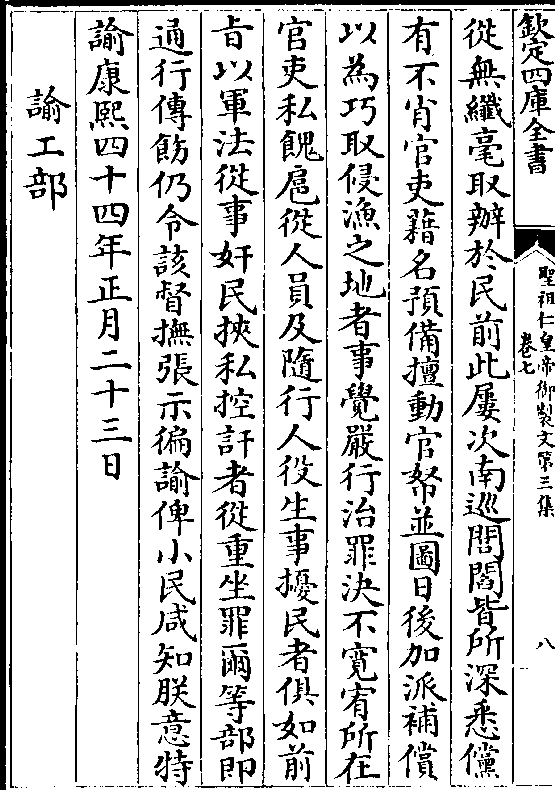 欽定四庫全書
聖祖仁皇帝御製文第三集
卷七
八
從無纖毫取辦於民前此屢次南巡閭閻皆所深悉儻
有不肖官吏藉名預備擅動官帑並圖日後加派補償
以為巧取侵漁之地者事覺嚴行治罪決不寛宥所在
官吏私餽扈從人員及隨行人役生事擾民者俱如前
㫖以軍法從事奸民挾私控訐者從重坐罪爾等部即
通行傳飭仍令該督撫張示徧諭俾小民咸知朕意特
諭康熙四十四年正月二十三日
諭工部